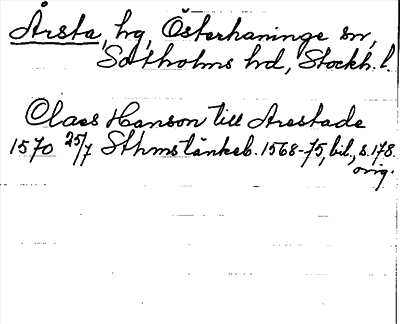 Årsta, hg, Österhaninge sn,
Sotholms hd, Stockh. l.
Claes Hanson till Arestade
1570 25/7 Sthms tänkeb. 1568-75, bil., s. 178.
orig.